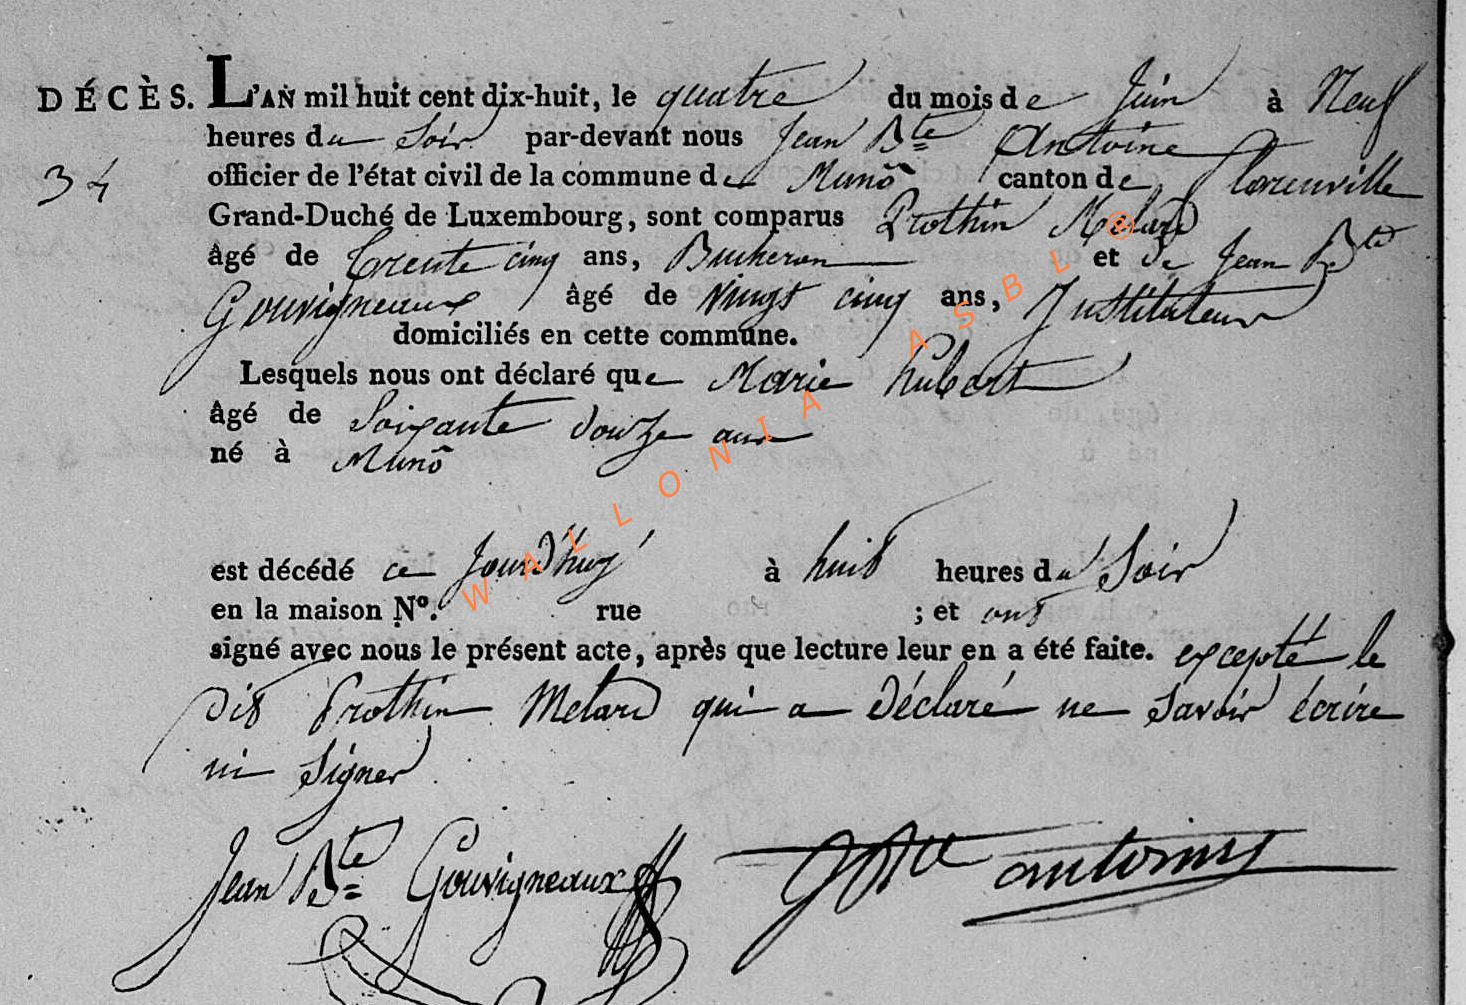 DÉCÈS. L'AN mil huit cent dix-huit, le quatre du mois de Juin à Neuf
heures du Soir par-devant nous Jean Bte Antoine
34 officier de l'état civil de la commune de Munô canton de florenville
Grand-Duché de Luxembourg, sont comparus Prothin Melard
âgé de trente cinq ans, Bucheron et de Jean Bte
Gouvigneaux âgé de vingt cinq ans, Instituteur
domiciliés en cette commune.
Lesquels nous ont déclaré que Marie hubert
âgé de Soixante douze ans
né à Munô
est décédé ce Jourd'huy à huit heures du Soir
en la maison Nº. rue ; et ont
signé avec nous le présent acte, après que lecture leur en a été faite. excepté le
dit Prothin Melard qui a déclaré ne savoir écrire
ni signer
Jean Bte Gouvigneaux JBte antoine
WALLONIA ASBL ®